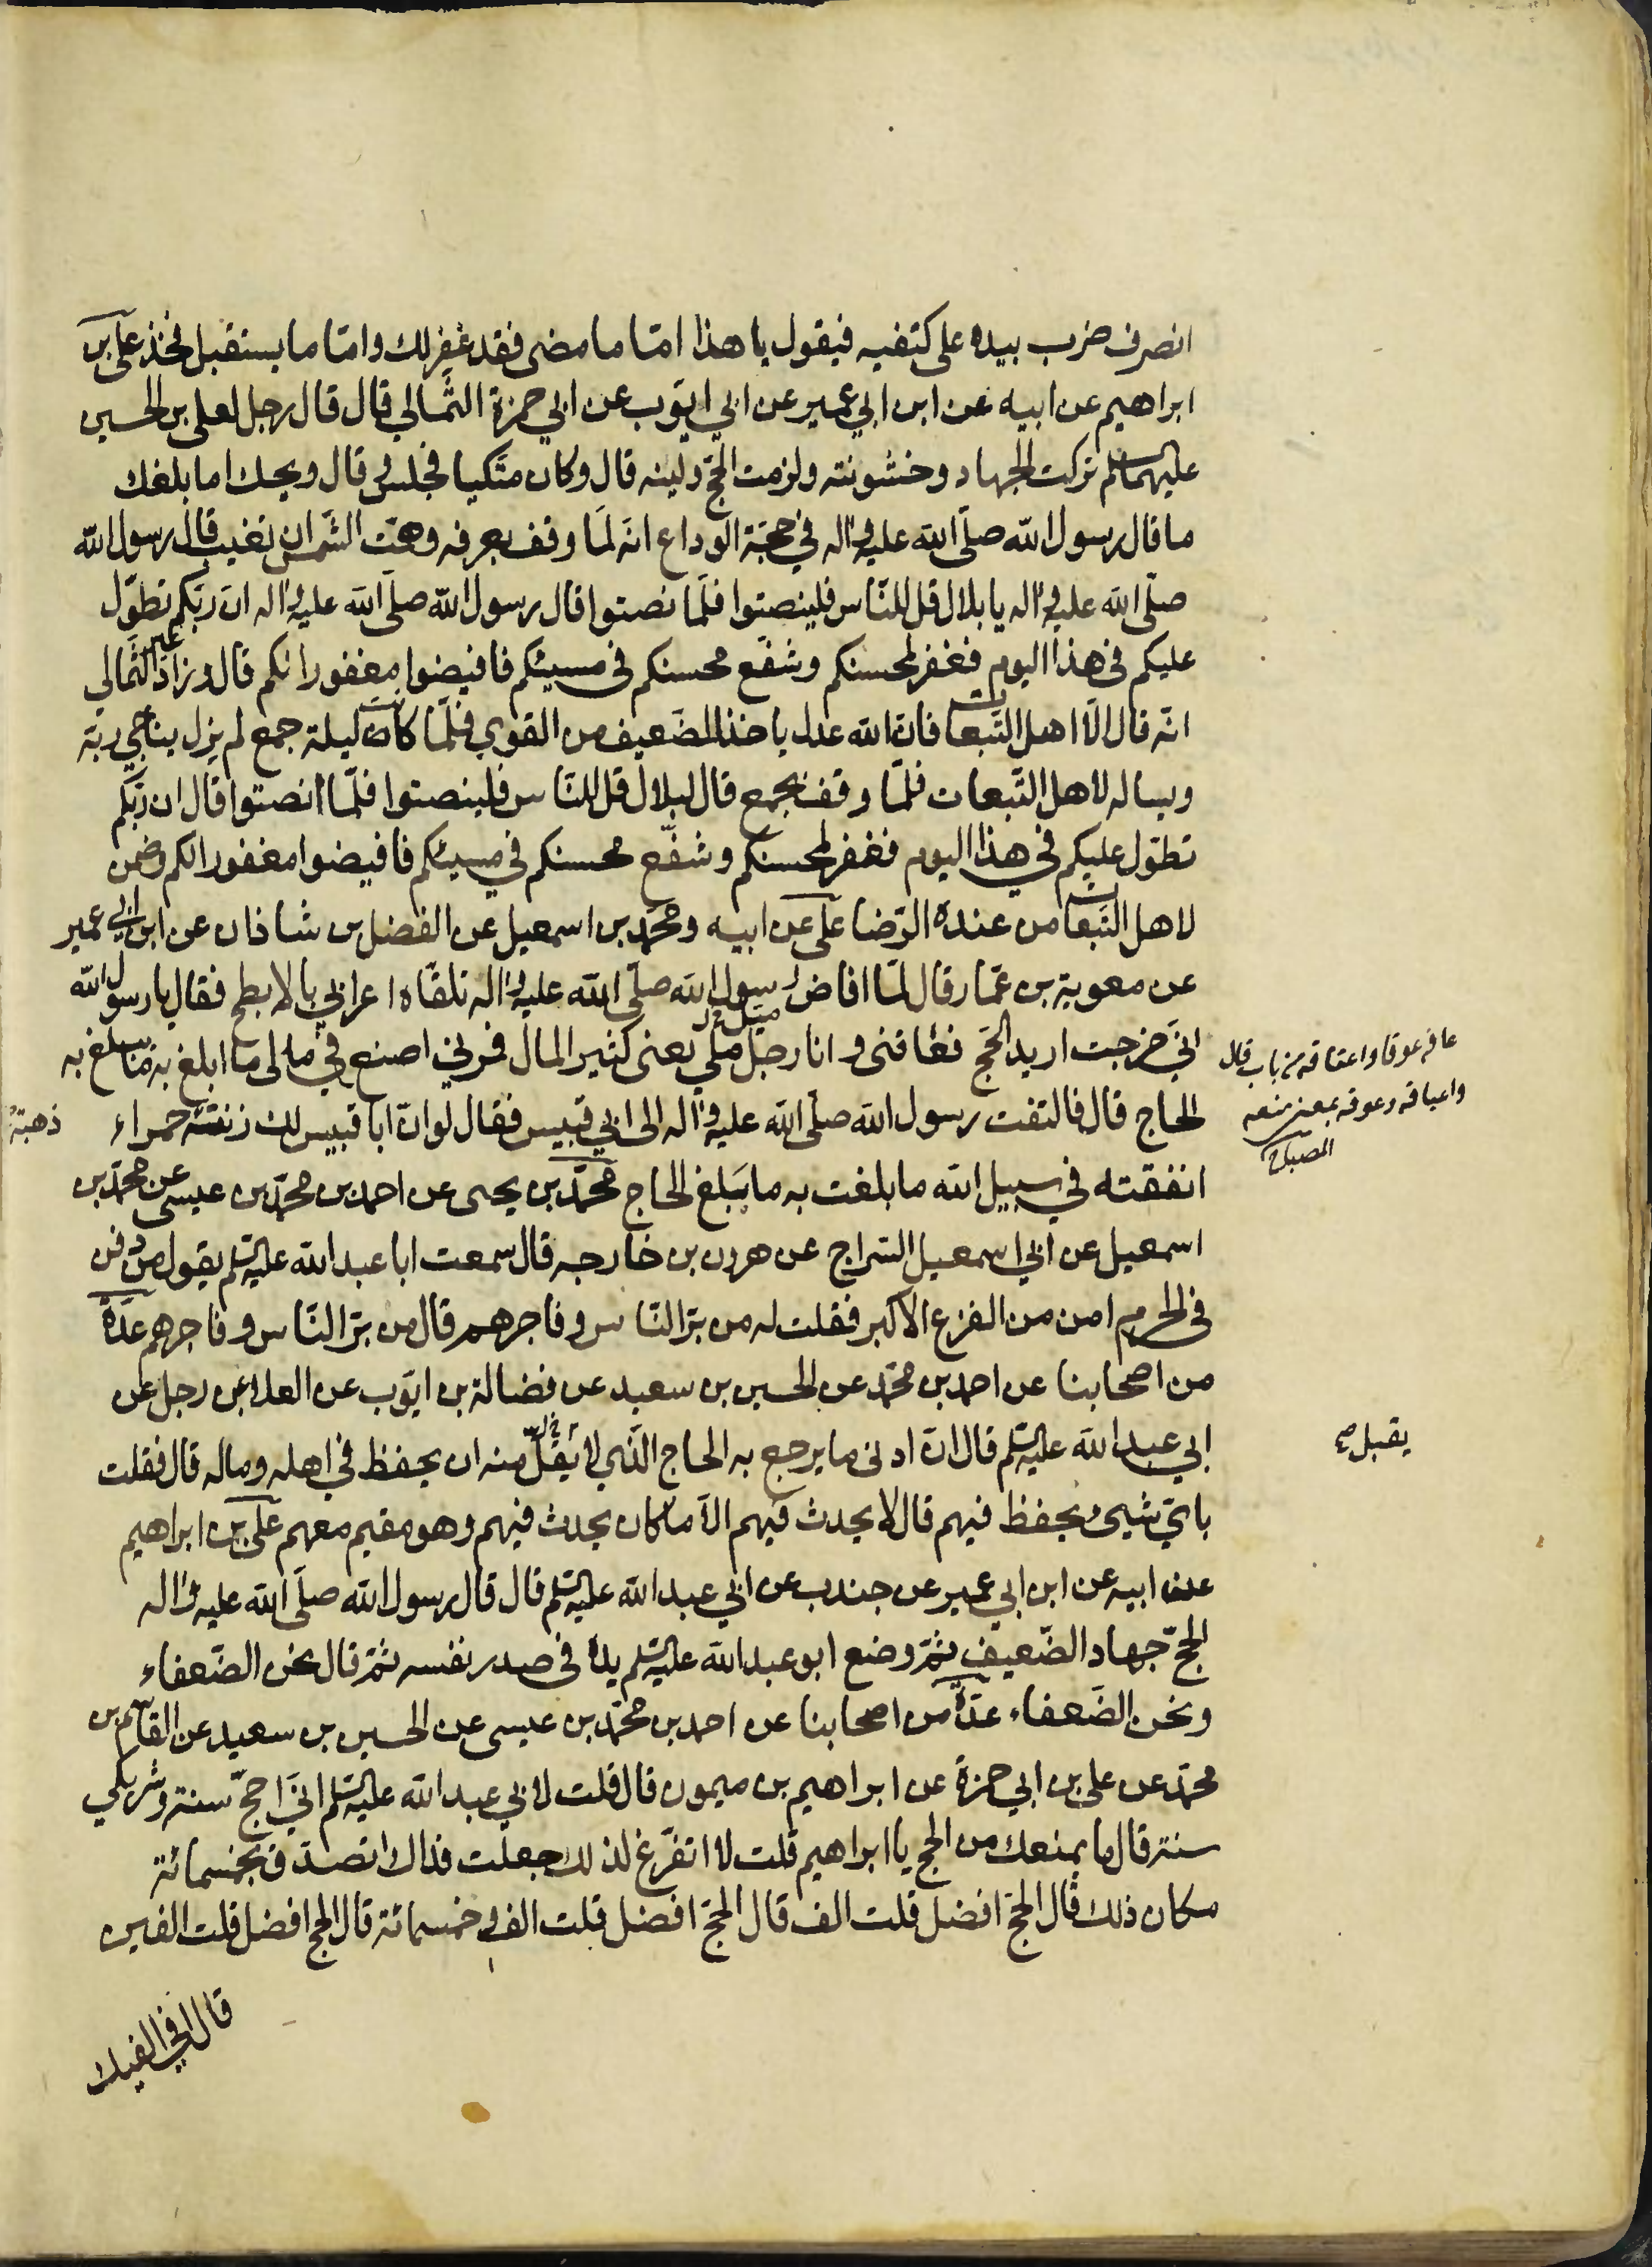 انصرف ضرب بيده على كتفيه فيقول يا هذا امّا ما مضى فقد غُفِر لك وامّا ما يستقبل فخذ علىّ بن
ابراهيم عن ابيه عن ابن ابي عمير عن ابي ايّوب عن ابي حمزة الثمالي قال قال رجل لعلي بن الحسين
عليهما السلم تركت الجهاد وخشونته ولزمت الحجّ ولينه قال وكان متّكيا فجلس وقال ويحك اما بلغك
ما قال رسول الله صلّى الله عليه واله في حجّة الوداع انّه لمّا وقف بعرفه وهمّت الشمس ان تغيب قال رسول الله
صلّى الله عليه واله يا بلال قل للنّاس فلينصتوا فلمّا نصتوا قال رسول الله صلّى الله عليه واله انّ ربّكم تطوّل
عليكم في هذا اليوم فغفر لمحسنكم وشفّع محسنكم في مسيئكم فافيضوا مغفورا لكم قال وزاد غير الثّمالي
انّه قال الّا اهل التّبعات فانّ الله عدل ياخذ للضّعيف من القوي فلمّا كانت ليلة جمع لم يزل يناجي ربّه
ويساله لاهل التّبعات فلمّا وقف بجمع قال لبلال قل للنّاس فلينصتوا فلمّا انصتوا قال ان ربّكم
تطوّل عليكم في هذا اليوم فغفر لمحسنكم وشفّع محسنكم في مسيئكم فافيضوا مغفورا لكم وضمن
لاهل التّبعات من عنده الرّضا علىّ عن ابيه ومحمّد بن اسمعيل عن الفضل بن شاذان عن ابن ابي عمير
عن معوية بن عمّار قال لمّا افاض رسول الله صلّى الله عليه واله تلقّاه اعرابي بالابطح فقال يا رسول الله
انّي خرجت اريد الحجّ فعاقنى وانا رجل ميّل ملي يعنى كثير المال فمرني اصنع في مالى ما ابلغ به ما يبلغ به
عافه عوقا واعتاقه من باب قال
واعياقه وعوقه بمعنى منعه
المصباح
الحاج قال فالتفت رسول الله صلّى الله عليه واله الى ابي قبيس فقال لو انّ ابا قبيس لك زنته حمراء
ذهبة
انفقته في سبيل الله ما بلغت به ما يبلغ الحاج محمّد بن يحيى عن احمد بن محمّد بن عيسى عن محمّد بن
اسمعيل عن ابي اسمعيل السّراج عن هرون بن خارجه قال سمعت ابا عبد الله عليه السّلم يقول من دفن
في الحرم امن من الفزع الاكبر فقلت له من برّ النّاس وفاجرهم قال من برّ النّاس وفاجرهم عدّة
من اصحابنا عن احمد بن محمّد عن الحسين بن سعيد عن فضالة بن ايّوب عن العلا عن رجل عن
ابي عبد الله عليه السّلم قال انّ ادنى ما يرجع به الحاج الّذي لا يقلّ منه ان يحفظ في اهله وماله قال فقلت
يقبل صح
باي شيىء يحفظ فيهم قال لا يحدث فيهم الّا ما كان يحدث فيهم وهو مقيم معهم علىّ بن ابراهيم
عن ابيه عن ابن ابي عمير عن جندب عن ابي عبد الله عليه السّلم قال قال رسول الله صلّى الله عليه واله
الحجّ جهاد الضّعيف ثمّ وضع ابو عبد الله عليه السّلم يده في صدر نفسه ثمّ قال نحن الضّعفاء
ونحن الضّعفاء عدّة من اصحابنا عن احمد بن محمّد بن عيسى عن الحسين بن سعيد عن القاسم بن
محمّد عن على بن ابي حمزة عن ابراهيم بن ميمون قال قلت لابي عبد الله عليه السّلم انّي احجّ سنة وشريكي
سنة قال ما يمنعك من الحج يا ابراهيم قلت لا اتفرّغ لذلك جعلت فداك اتصدّق بخمسمائة
مكان ذلك قال الحجّ افضل قلت الف قال الحجّ افضل قلت الف وخمسمائة قال الحج افضل قلت الفين
قال افي الفيك